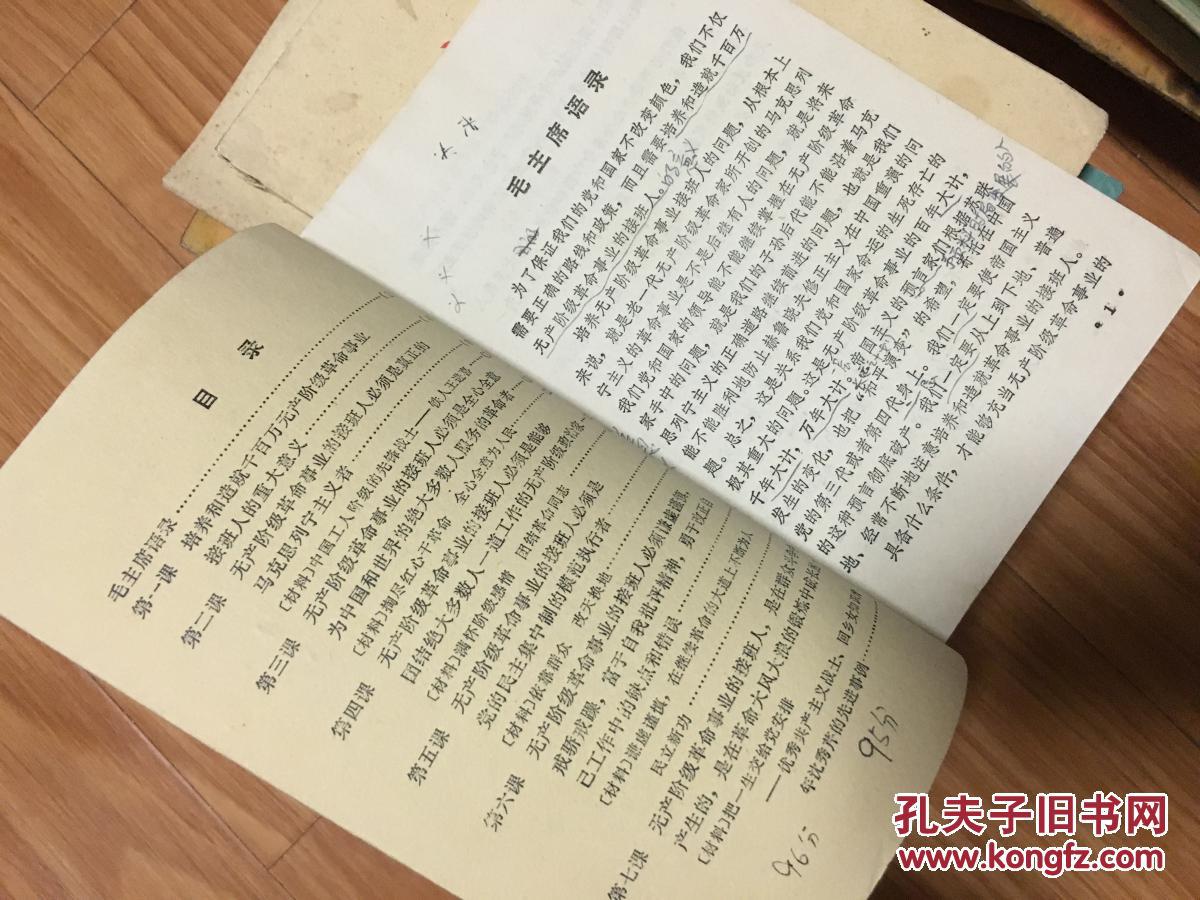 目 录
毛主席语录
第一课 培养和造就千百万无产阶级革命事业
接班人的重大意义
第二课 无产阶级革命事业的接班人必须是真正的
马克思列宁主义者
〔材料〕中国工人阶级的先锋战士——铁人王进喜
第三课 无产阶级革命事业的接班人必须是全心全意
为中国和世界的绝大多数人服务的革命者
〔材料〕掏尽红心干革命 全心全意为人民
第四课 无产阶级革命事业的接班人必须是能够
团结绝大多数人一道工作的无产阶级政治家
〔材料〕满怀阶级感情 团结革命同志
第五课 无产阶级革命事业的接班人必须是
党的民主集中制的模范执行者
〔材料〕依靠群众 改天换地
第六课 无产阶级革命事业的接班人必须谦虚谨慎，
戒骄戒躁，富于自我批评精神，勇于改正自
己工作中的缺点和错误
〔材料〕谦虚谨慎，在继续革命的大道上不断为人
民立新功
第七课 无产阶级革命事业的接班人，是在群众斗争中
产生的，是在革命大风大浪的锻炼中成长
〔材料〕把一生交给党安排
——优秀共产主义战士、回乡女知识青
年沈秀芹的先进事例
95分
96分
毛主席语录
为了保证我们的党和国家不改变颜色，我们不仅
需要正确的路线和政策，而且需要培养和造就千百万
无产阶级革命事业的接班人。
培养无产阶级革命事业接班人的问题，从根本上
来说，就是老一代无产阶级革命家所开创的马克思列
宁主义的革命事业是不是后继有人的问题，就是将来
我们党和国家的领导能不能继续掌握在无产阶级革命
家手中的问题，就是我们的子孙后代能不能沿着马克
思列宁主义的正确道路继续前进的问题，也就是我们
能不能胜利地防止赫鲁晓夫修正主义在中国重演的问
题。总之，这是关系我们党和国家命运的生死存亡的
极其重大的问题。这是无产阶级革命事业的百年大计，
千年大计，万年大计。帝国主义的预言家们根据苏联
发生的变化，也把“和平演变”的希望，寄托在中国
党的第三代或者第四代身上。我们一定要使帝国主义
的这种预言彻底破产。我们一定要从上到下地、普遍
地、经常不断地注意培养和造就革命事业的接班人。
具备什么条件，才能够充当无产阶级革命事业的
• 1 •
孔夫子旧书网
www.kongfz.com